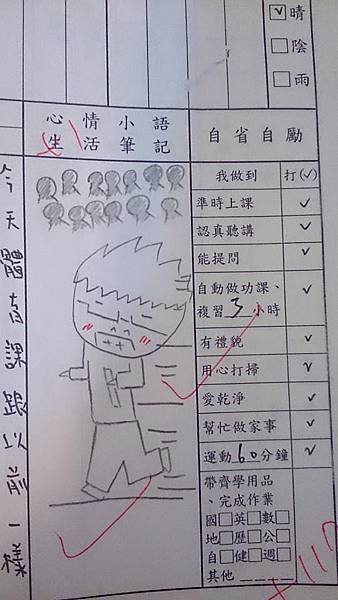 晴
陰
雨
心情小語
生活筆記
今天體育課跟以前一樣
自省自勵
我做到 打(✓)
準時上課 ✓
認真聽講 ✓
能提問 ✓
自動做功課、
複習3小時 ✓
有禮貌 ✓
用心打掃 ✓
愛乾淨 ✓
幫忙做家事 ✓
運動60分鐘 ✓
帶齊學用品
、完成作業
國□英□數□
地□歷□公□
自□健□週□
其他____